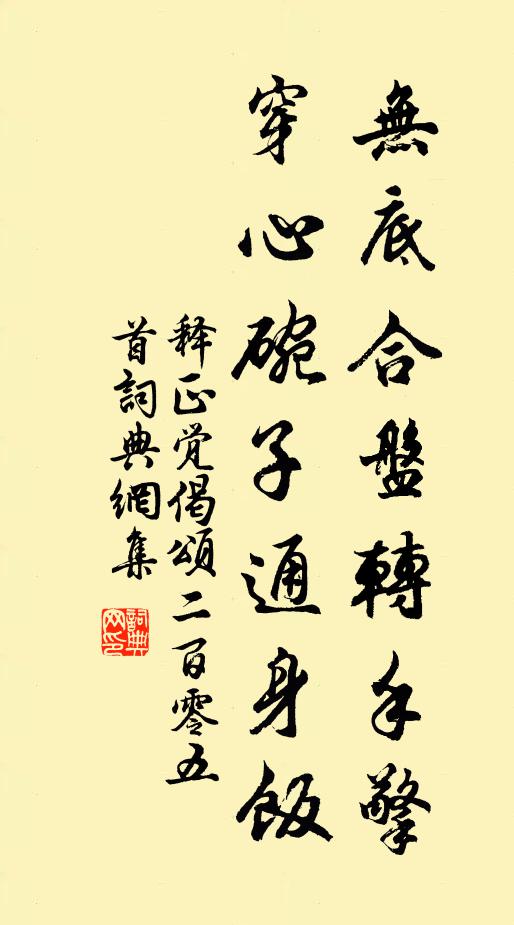 無底合盤轉手擎
穿心碗子通身飯
释正觉偈頌二百零五
首詞典網集
詞典网印